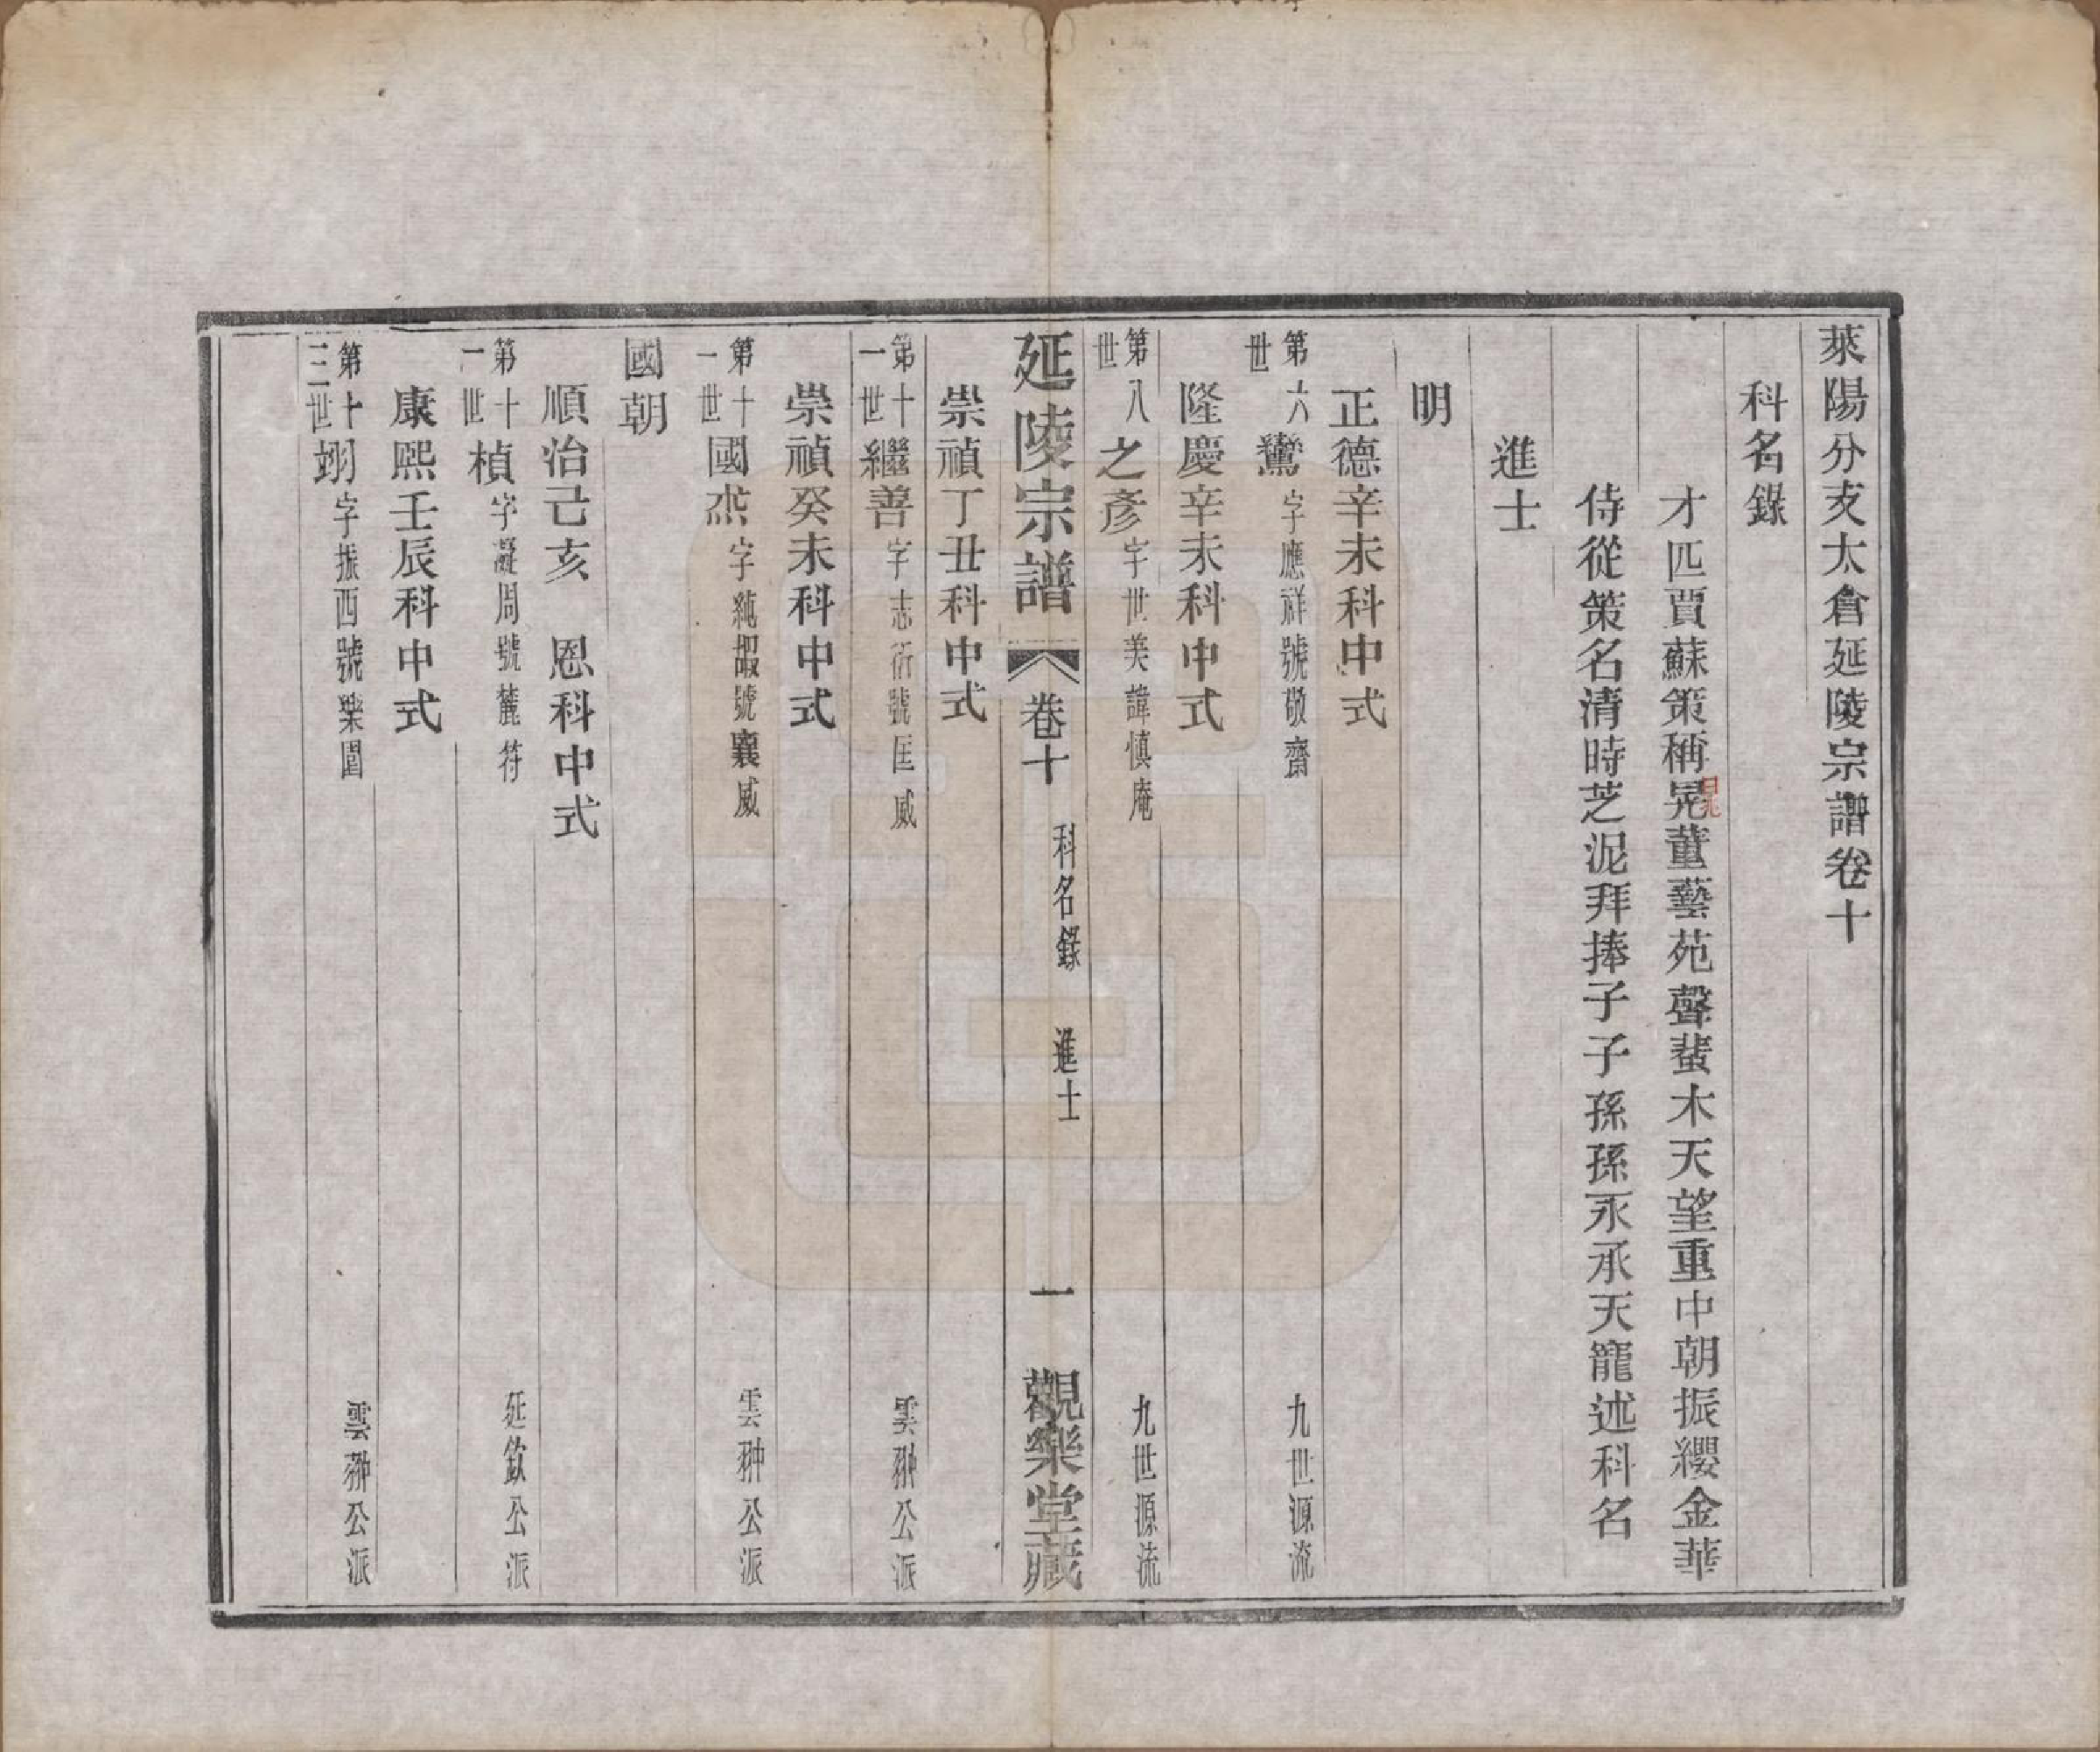 萊陽分支太倉延陵宗譜卷十
科名錄
才匹賈蘇策稱晁董藝苑聲蜚木天望重中朝振纓金華
侍從策名清時芝泥拜捧子子孫孫永承天寵述科名
進士
明
正德辛未科中式
第六世 鸞 字應祥號敬齋 九世源流
隆慶辛未科中式
第八世 之彥 字世美諱慎庵 九世源流
延陵宗譜 卷十 科名錄 進士 一 觀樂堂藏
崇禎丁丑科中式
第十一世 繼善 字志衍號匡威 雲翀公派
崇禎癸未科中式
第十一世 國杰 字純嘏號襄威 雲翀公派
國朝
順治己亥 恩科中式
第十一世 楨 字凝周號麓符 延欽公派
康熙壬辰科中式
第十三世 翊 字振西號樂園 雲翀公派